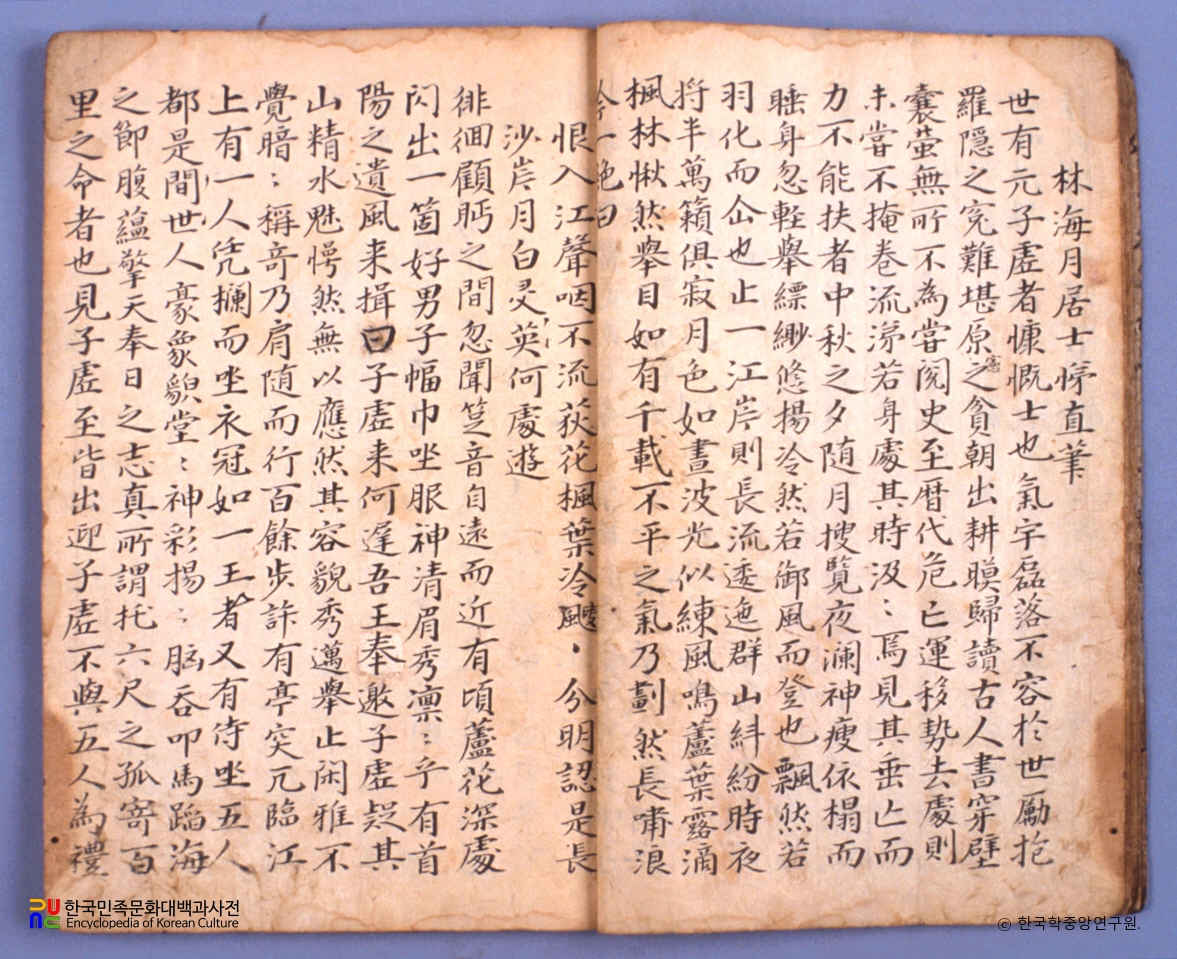 林海月居士㝱直筆
世有元子虛者慷慨士也氣宇磊落不容於世厲抱
羅隱之寃難堪原憲之貧朝出耕暝歸讀古人書穿壁
囊螢無所不為嘗閱史至曆代危亡運移勢去處則
未嘗不掩卷流涕若身處其時汲〻焉見其垂亡而
力不能扶者中秋之夕随月搜覽夜瀾神瘦依榻而
睡身忽軽舉縹緲悠揚冷然若御風而登也飄然若
羽化而仚也止一江岸則長流逶迤群山糾紛時夜
将半萬籟俱寂月色如晝波光似練風鳴蘆葉露滴
楓林愀然舉目如有千載不平之氣乃劃然長嘯浪
吟一絶曰
恨入江聲咽不流荻花楓葉冷颼〻分明認是長
沙岸月白灵英何處遊
徘徊顧眄之間忽聞跫音自遠而近有頃蘆花深處
閃出一箇好男子幅巾坐服神清眉秀凛〻乎有首
陽之遺風来揖曰子虛来何遅吾王奉邀子虛疑其
山精水魅愕然無以應然其容貌秀邁舉止闲雅不
覺暗〻稱竒乃肩随而行百餘步許有亭突兀臨江
上有一人凭攔而坐衣冠如一王者又有侍坐五人
都是間世人豪象貌堂〻神彩揚〻胸吞叩馬蹈海
之節腹蘊擎天奉日之志真所謂托六尺之孤寄百
里之命者也見子虛至皆出迎子虛不與五人為禮
한국민족문화대백과사전
Encyclopedia of Korean Culture
© 한국학중앙연구원.